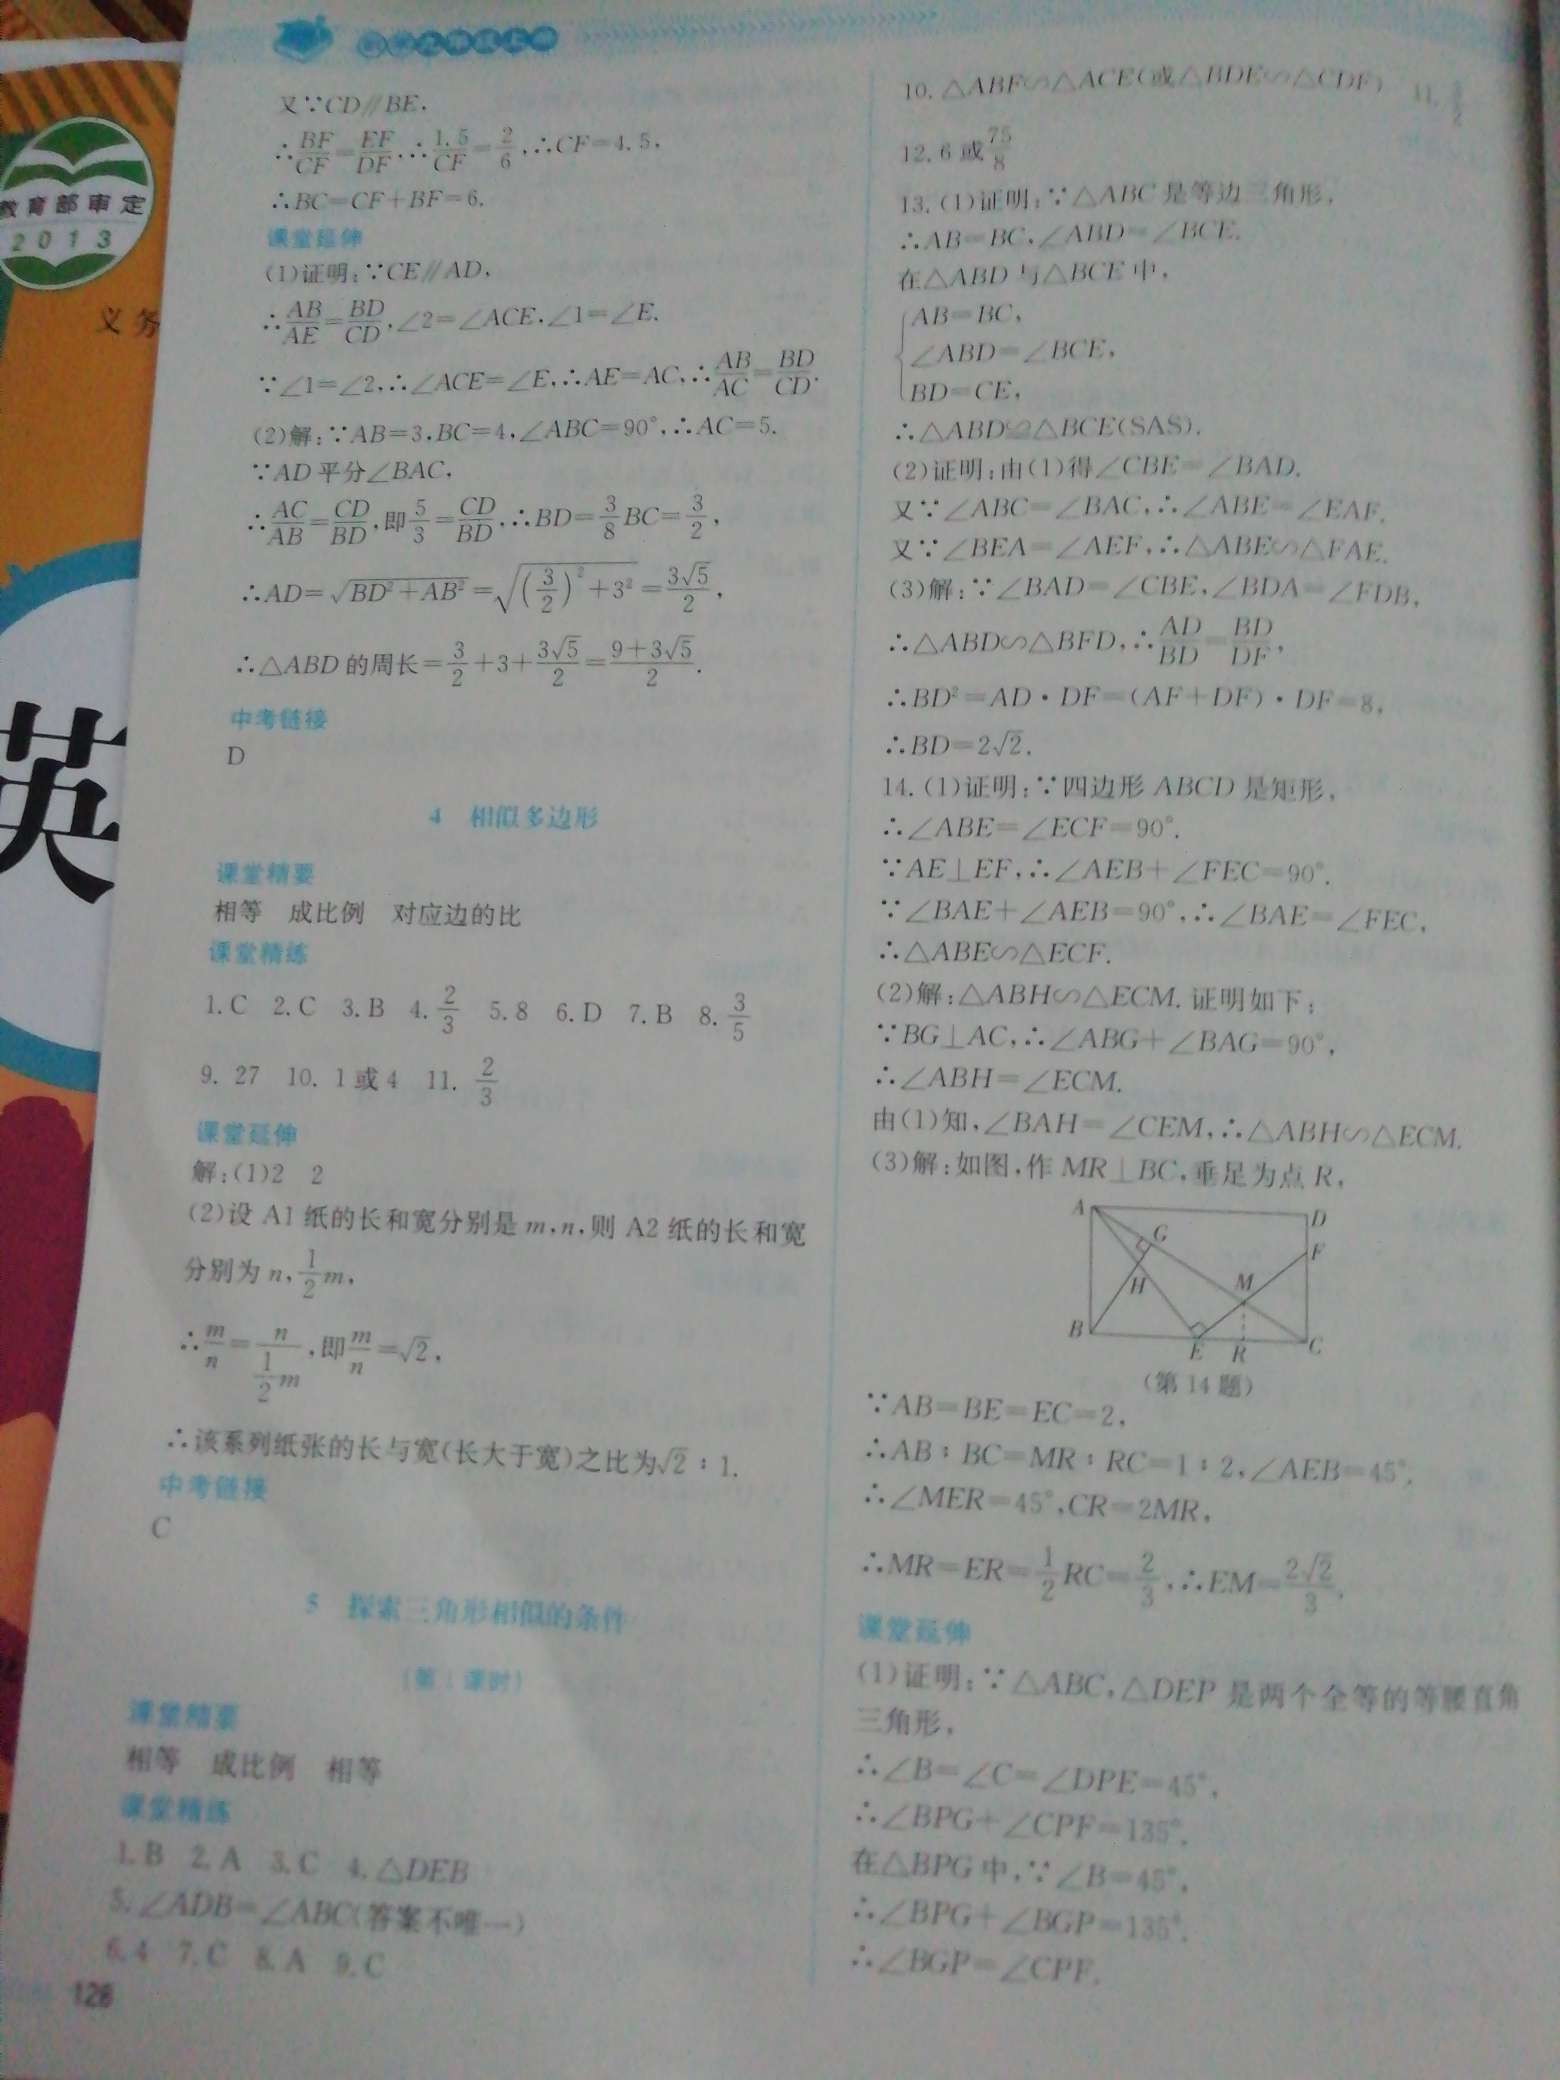 教育部审定
2013
义务
英
又∵CD∥BE,
∴BF/CF=EF/DF,∴1.5/CF=2/6,∴CF=4.5,
∴BC=CF+BF=6.
课堂延伸
(1)证明:∵CE∥AD,
∴AB/AE=BD/CD,∠2=∠ACE,∠1=∠E.
∵∠1=∠2,∴∠ACE=∠E,∴AE=AC,∴AB/AC=BD/CD.
(2)解:∵AB=3,BC=4,∠ABC=90°,∴AC=5.
∵AD平分∠BAC,
∴AC/AB=CD/BD,即5/3=CD/BD,∴BD=3/8BC=3/2,
∴AD=√(BD²+AB²)=√((3/2)²+3²)=3√5/2,
∴△ABD的周长=3/2+3+3√5/2=(9+3√5)/2.
中考链接
D
4 相似多边形
课堂精要
相等 成比例 对应边的比
课堂精练
1.C 2.C 3.B 4.2/3 5.8 6.D 7.B 8.3/5
9. 27 10. 1或4 11. 2/3
课堂延伸
解:(1)2 2
(2)设A1纸的长和宽分别是m,n,则A2纸的长和宽
分别为n,1/2m,
∴m/n=n/(1/2m),即m/n=√2,
∴该系列纸张的长与宽(长大于宽)之比为√2∶1.
中考链接
C
5 探索三角形相似的条件
(第1课时)
课堂精要
相等 成比例 相等
课堂精练
1.B 2.A 3.C 4.△DEB
5.∠ADB=∠ABC(答案不唯一)
6.4 7.C 8.A 9.C
128
10.△ABF∽△ACE(或△BDE∽△CDF) 11.
12.6或75/8
13.(1)证明:∵△ABC是等边三角形,
∴AB=BC,∠ABD=∠BCE.
在△ABD与△BCE中,
AB=BC,
∠ABD=∠BCE,
BD=CE,
∴△ABD≌△BCE(SAS).
(2)证明:由(1)得∠CBE=∠BAD.
又∵∠ABC=∠BAC,∴∠ABE=∠EAF.
又∵∠BEA=∠AEF,∴△ABE∽△FAE.
(3)解:∵∠BAD=∠CBE,∠BDA=∠FDB,
∴△ABD∽△BFD,∴AD/BD=BD/DF,
∴BD²=AD·DF=(AF+DF)·DF=8,
∴BD=2√2.
14.(1)证明:∵四边形ABCD是矩形,
∴∠ABE=∠ECF=90°.
∵AE⊥EF,∴∠AEB+∠FEC=90°.
∵∠BAE+∠AEB=90°,∴∠BAE=∠FEC,
∴△ABE∽△ECF.
(2)解:△ABH∽△ECM.证明如下:
∵BG⊥AC,∴∠ABG+∠BAG=90°,
∴∠ABH=∠ECM.
由(1)知,∠BAH=∠CEM,∴△ABH∽△ECM.
(3)解:如图,作MR⊥BC,垂足为点R,
A D
G F
H M
B E R C
(第14题)
∵AB=BE=EC=2,
∴AB∶BC=MR∶RC=1∶2,∠AEB=45°,
∴∠MER=45°,CR=2MR,
∴MR=ER=1/2RC=2/3,∴EM=2√2/3.
课堂延伸
(1)证明:∵△ABC,△DEP是两个全等的等腰直角
三角形,
∴∠B=∠C=∠DPE=45°,
∴∠BPG+∠CPF=135°.
在△BPG中,∵∠B=45°,
∴∠BPG+∠BGP=135°.
∴∠BGP=∠CPF.